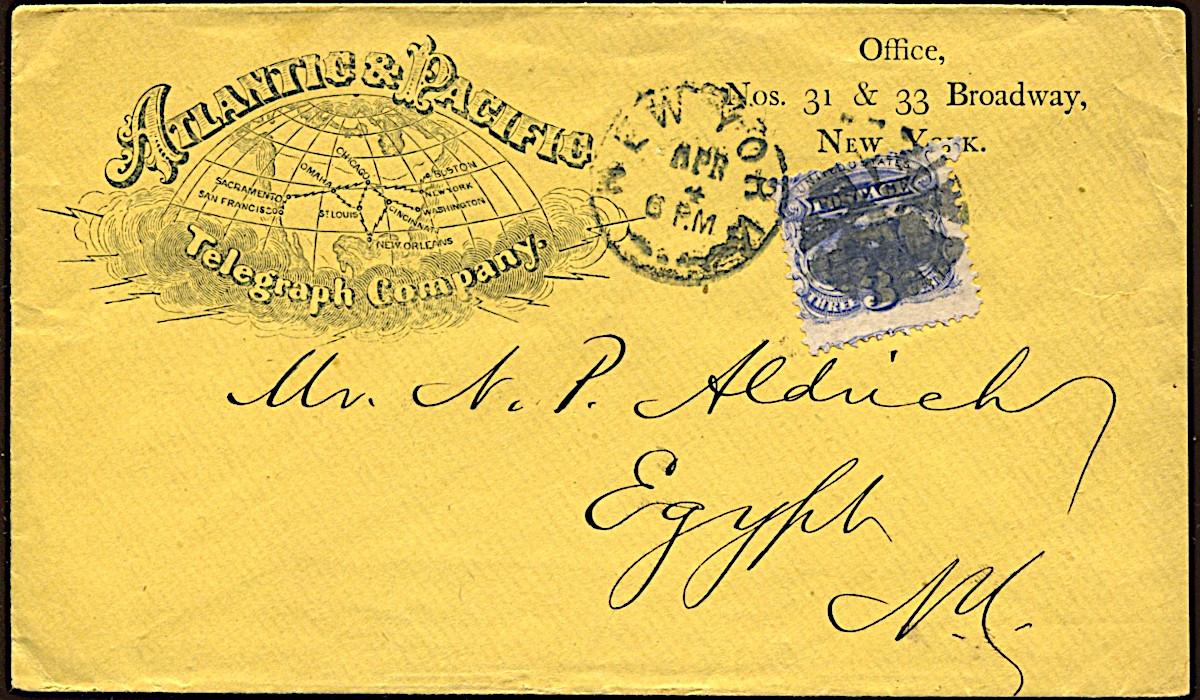 ATLANTIC & PACIFIC
Telegraph Company.
CHICAGO
BOSTON
OMAHA
NEW YORK
SACRAMENTO
SAN FRANCISCO
ST LOUIS
CINCINNATI
WASHINGTON
NEW ORLEANS
Office,
Nos. 31 & 33 Broadway,
NEW YORK.
NEW YORK
APR
4
6 P.M
UNITED STATES
POSTAGE
THREE 3
Mr. N. P. Aldrich
Egypt
N.Y.